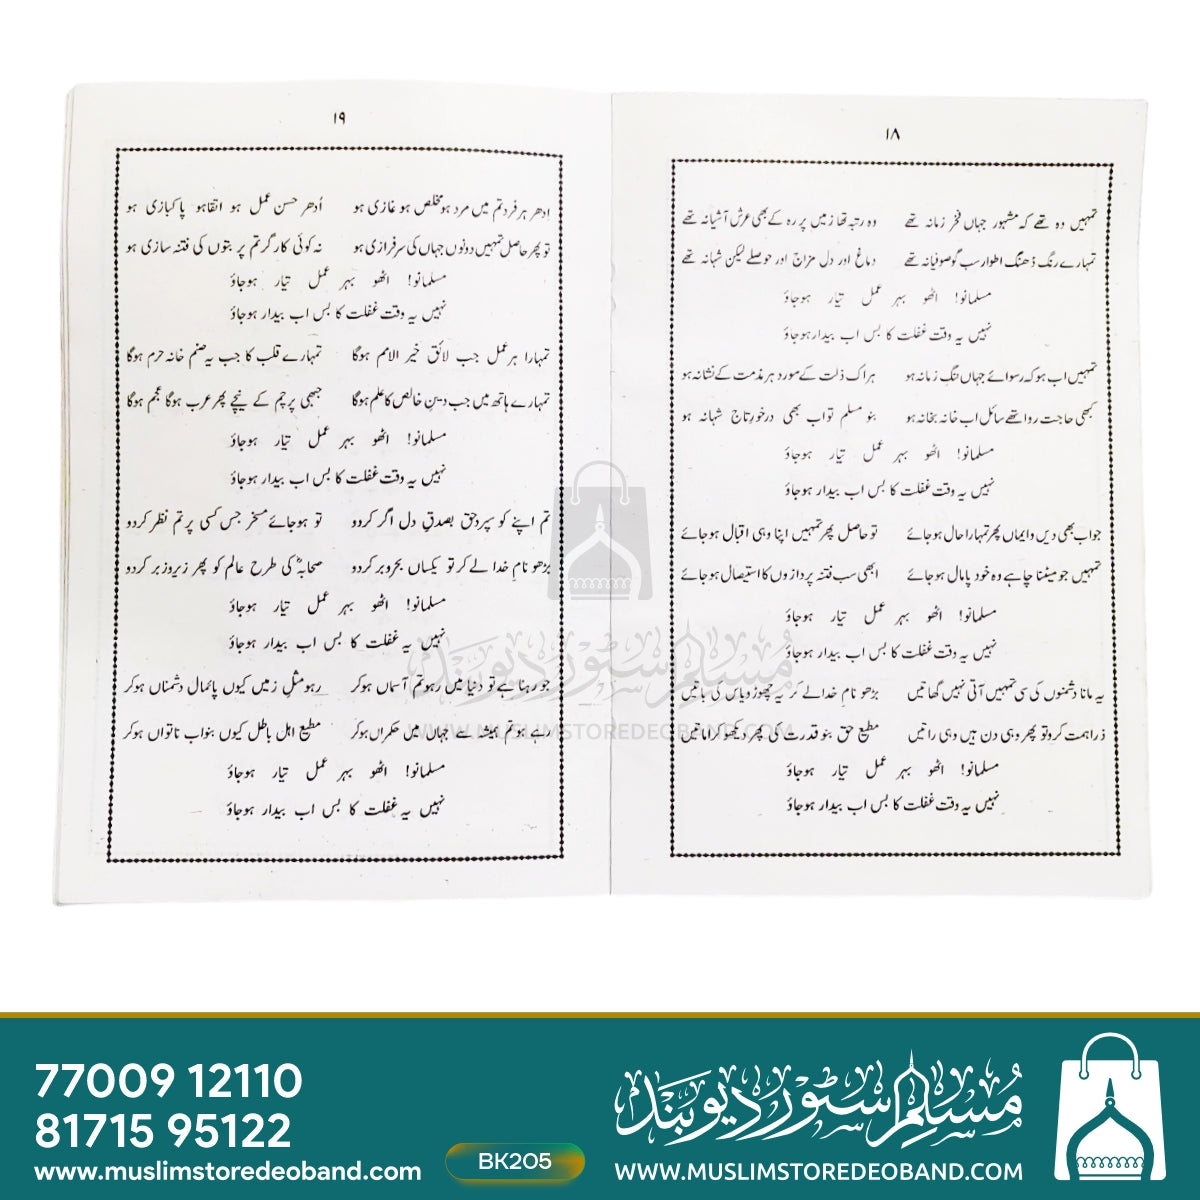 ۱۸
تمہیں وہ تھے کہ مشہور جہاں فخر زمانہ تھے وہ رتبہ تھا زمیں پر رہ کے بھی عرش آشیانہ تھے
تمہارے رنگ ڈھنگ اطوار سب گو صوفیانہ تھے دماغ اور دل مزاج اور حوصلے لیکن شہانہ تھے
مسلمانو! اٹھو بہر عمل تیار ہوجاؤ
نہیں یہ وقت غفلت کا بس اب بیدار ہوجاؤ
تمہیں اب ہو کہ رسوائے جہاں ننگ زمانہ ہو ہراک ذلت کے مورد ہر مذمت کے نشانہ ہو
کبھی حاجت روا تھے سائل اب خانہ بخانہ ہو بنو مسلم تو اب بھی درخور تاج شہانہ ہو
مسلمانو! اٹھو بہر عمل تیار ہوجاؤ
نہیں یہ وقت غفلت کا بس اب بیدار ہوجاؤ
جو اب بھی دیں و ایماں پھر تمہارا حال ہوجائے تو حاصل پھر تمہیں اپنا وہی اقبال ہوجائے
تمہیں جو میٹنا چاہے وہ خود پامال ہوجائے ابھی سب فتنہ پردازوں کا استیصال ہوجائے
مسلمانو! اٹھو بہر عمل تیار ہوجاؤ
نہیں یہ وقت غفلت کا بس اب بیدار ہوجاؤ
یہ مانا دشمنوں کی سی تمہیں آتی نہیں گھاتیں بڑھو نام خدا لے کر یہ چھوڑو یاس کی باتیں
ذرا ہمت کرو تو پھر وہی دن ہیں وہی راتیں مطیع حق بنو قدرت کی پھر دیکھو کراماتیں
مسلمانو! اٹھو بہر عمل تیار ہوجاؤ
نہیں یہ وقت غفلت کا بس اب بیدار ہوجاؤ
۱۹
اِدھر ہر فرد تم میں مرد ہو مخلص ہو غازی ہو اُدھر حسن عمل ہو اتقا ہو پاکبازی ہو
تو پھر حاصل تمہیں دونوں جہاں کی سرفرازی ہو نہ کوئی کارگر تم پر بتوں کی فتنہ سازی ہو
مسلمانو! اٹھو بہر عمل تیار ہوجاؤ
نہیں یہ وقت غفلت کا بس اب بیدار ہوجاؤ
تمہارا ہر عمل جب لائق خیر الامم ہوگا تمہارے قلب کا جب یہ صنم خانہ حرم ہوگا
تمہارے ہاتھ میں جب دینِ خالص کا علم ہوگا جبھی پرچم کے نیچے پھر عرب ہوگا عجم ہوگا
مسلمانو! اٹھو بہر عمل تیار ہوجاؤ
نہیں یہ وقت غفلت کا بس اب بیدار ہوجاؤ
تم اپنے کو سپردِ حق بصدقِ دل اگر کردو تو ہوجائے مسخر جس کسی پر تم نظر کردو
بڑھو نامِ خدا لے کر تو یکساں بحر و بر کردو صحابہؓ کی طرح عالم کو پھر زیر و زبر کردو
مسلمانو! اٹھو بہر عمل تیار ہوجاؤ
نہیں یہ غفلت کا بس اب بیدار ہوجاؤ
جو رہنا ہے تو دنیا میں رہو تم آسماں ہوکر رہو مثلِ زمیں کیوں پائمال دشمناں ہوکر
رہے ہو تم ہمیشہ سے جہاں میں حکمراں ہوکر مطیع اہل باطل کیوں بنو اب ناتواں ہوکر
مسلمانو! اٹھو بہر عمل تیار ہوجاؤ
نہیں یہ غفلت کا بس اب بیدار ہوجاؤ
مسلم سٹور دیوبند
WWW.MUSLIMSTOREDEOBAND.COM
77009 12110
81715 95122
www.muslimstoredeoband.com
BK205
مسلم سٹور دیوبند
WWW.MUSLIMSTOREDEOBAND.COM